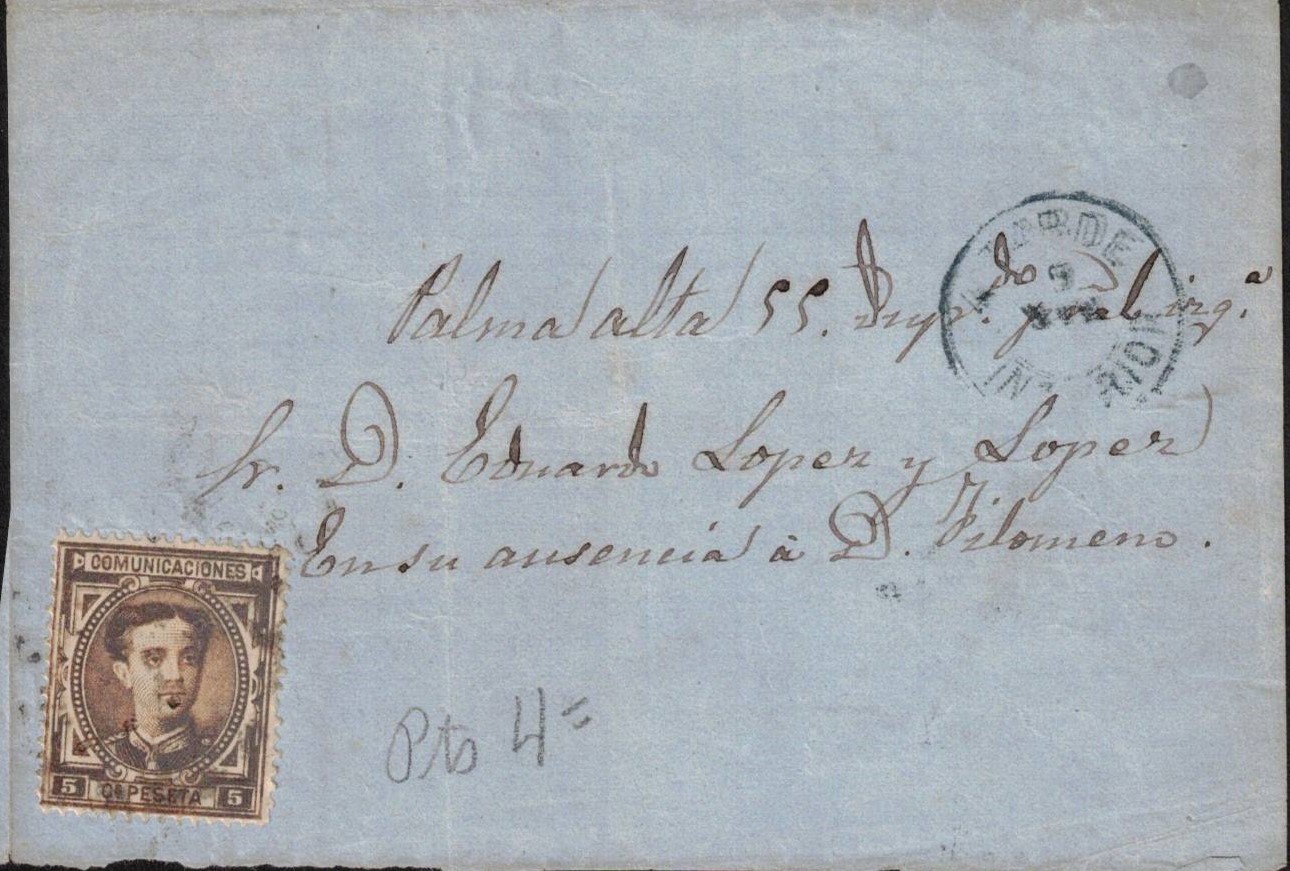 Palma alta 55. pral izq.a
Sr. D. Eduardo Lopez y Lopez
En su ausencia à D. Filomeno.
TARDE
9
INT RIOR
COMUNICACIONES
5 Cs PESETA 5
Pts 4=